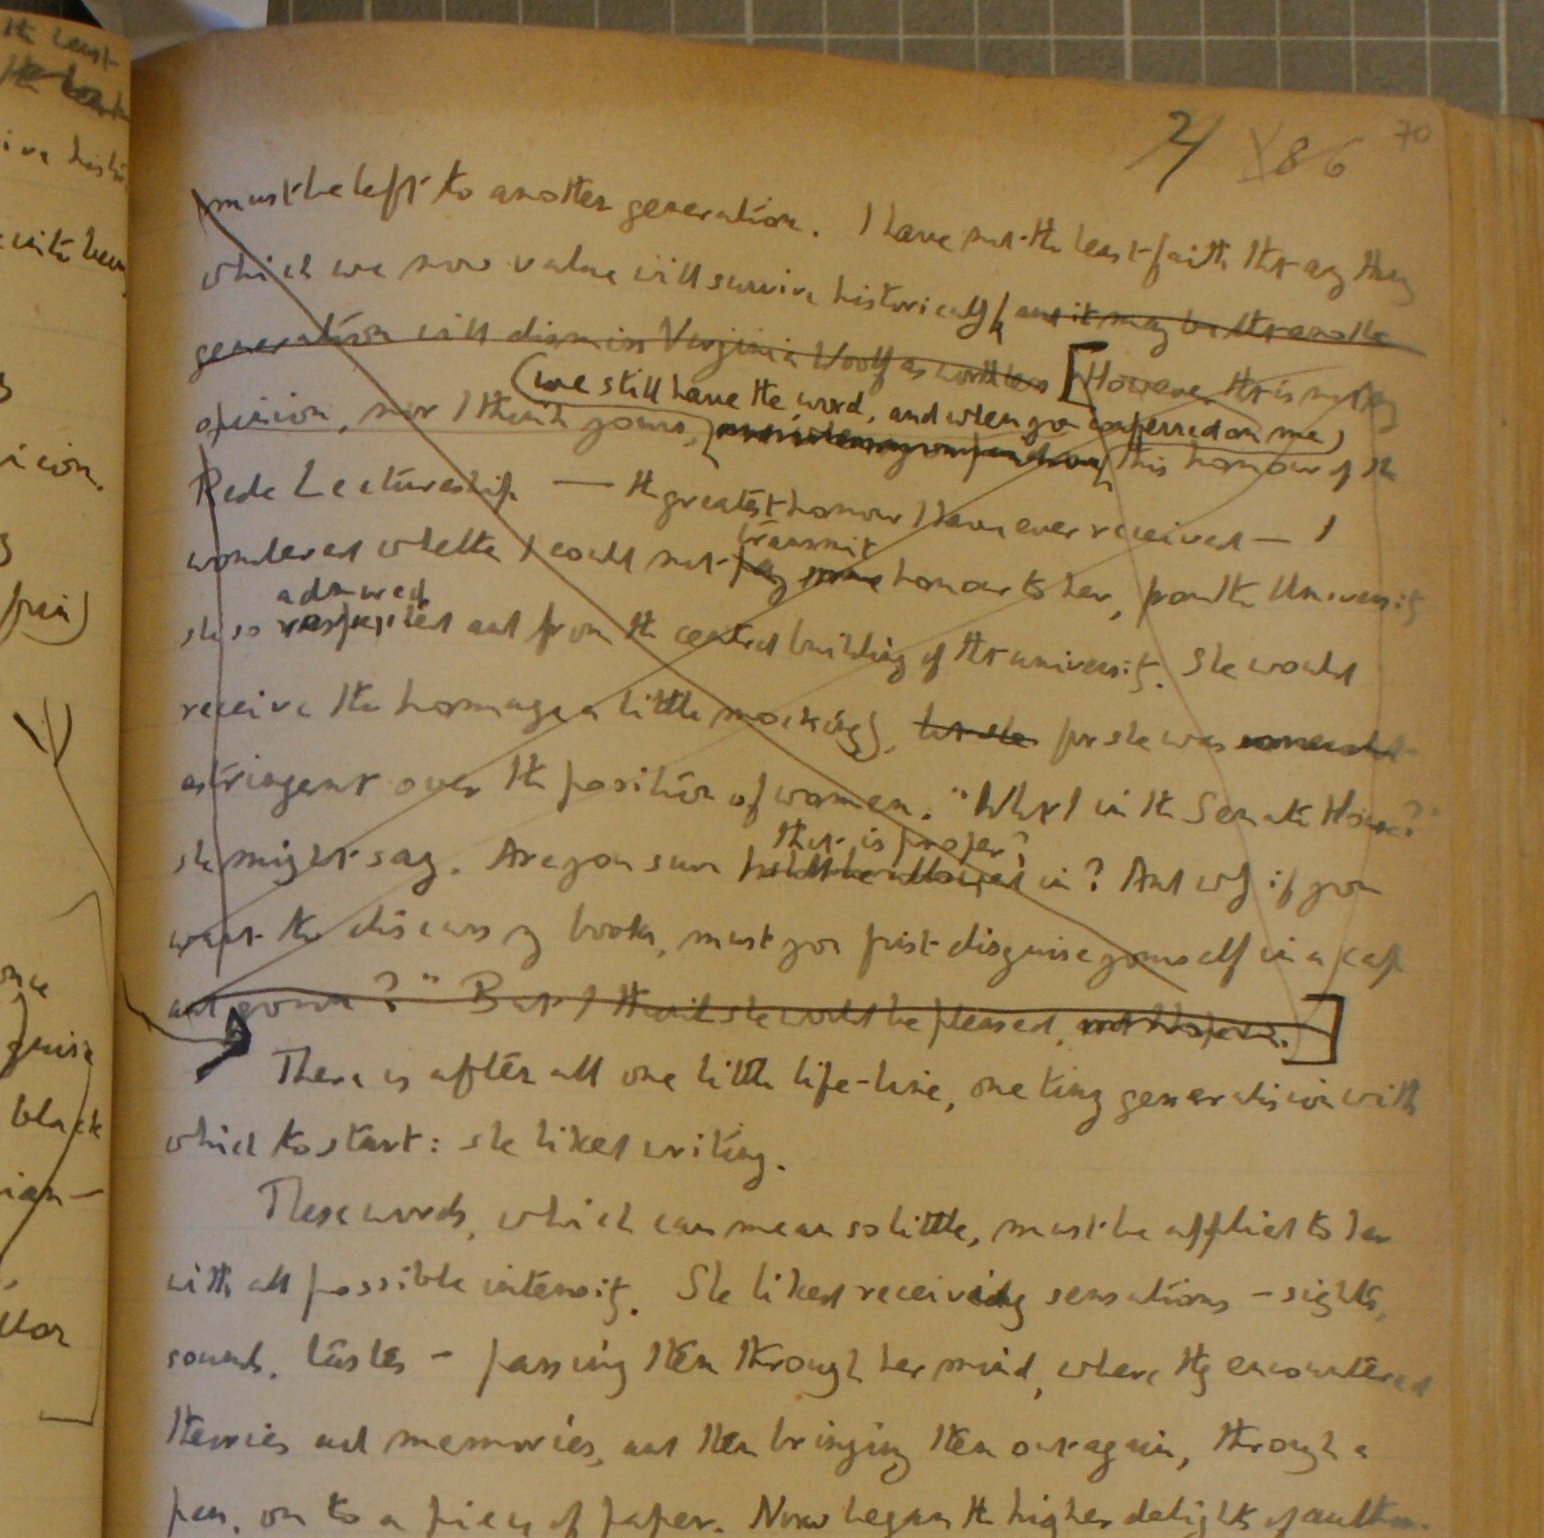 2/ X86 70
must be left to another generation. I have not the least faith that any thing
which we now value will survive historically, and it may be that another
generation will dismiss Virginia Woolf as worthless [However this is not my
(we still have the word, and when you conferred on me)
opinion, nor I think yours, this honour of the
Rede Lectureship — the greatest honour I have ever received — I
transmit
wondered whether I could not pay some honour to her, from the University
admired
she so respected and from the central building of that university. She would
receive the homage a little mockingly, for she was somewhat
astringent over the position of women. "What I in the Senate House?"
that is proper?
she might say. Are you sure in? And why if you
want to discuss my books, must you first disguise yourself in a cap
and gown?" But I think she would be pleased, ]
There is after all one little life-line, one tiny generalision with
which to start: she liked writing.
These words, which can mean so little, must be applied to her
with all possible intensity. She liked receiving sensations – sights,
sounds, tastes – passing them through her mind, where they encountered
theories and memories, and then bringing them out again, through a
pen, on to a piece of paper. Now began the higher delights of author-
the least
with her
black